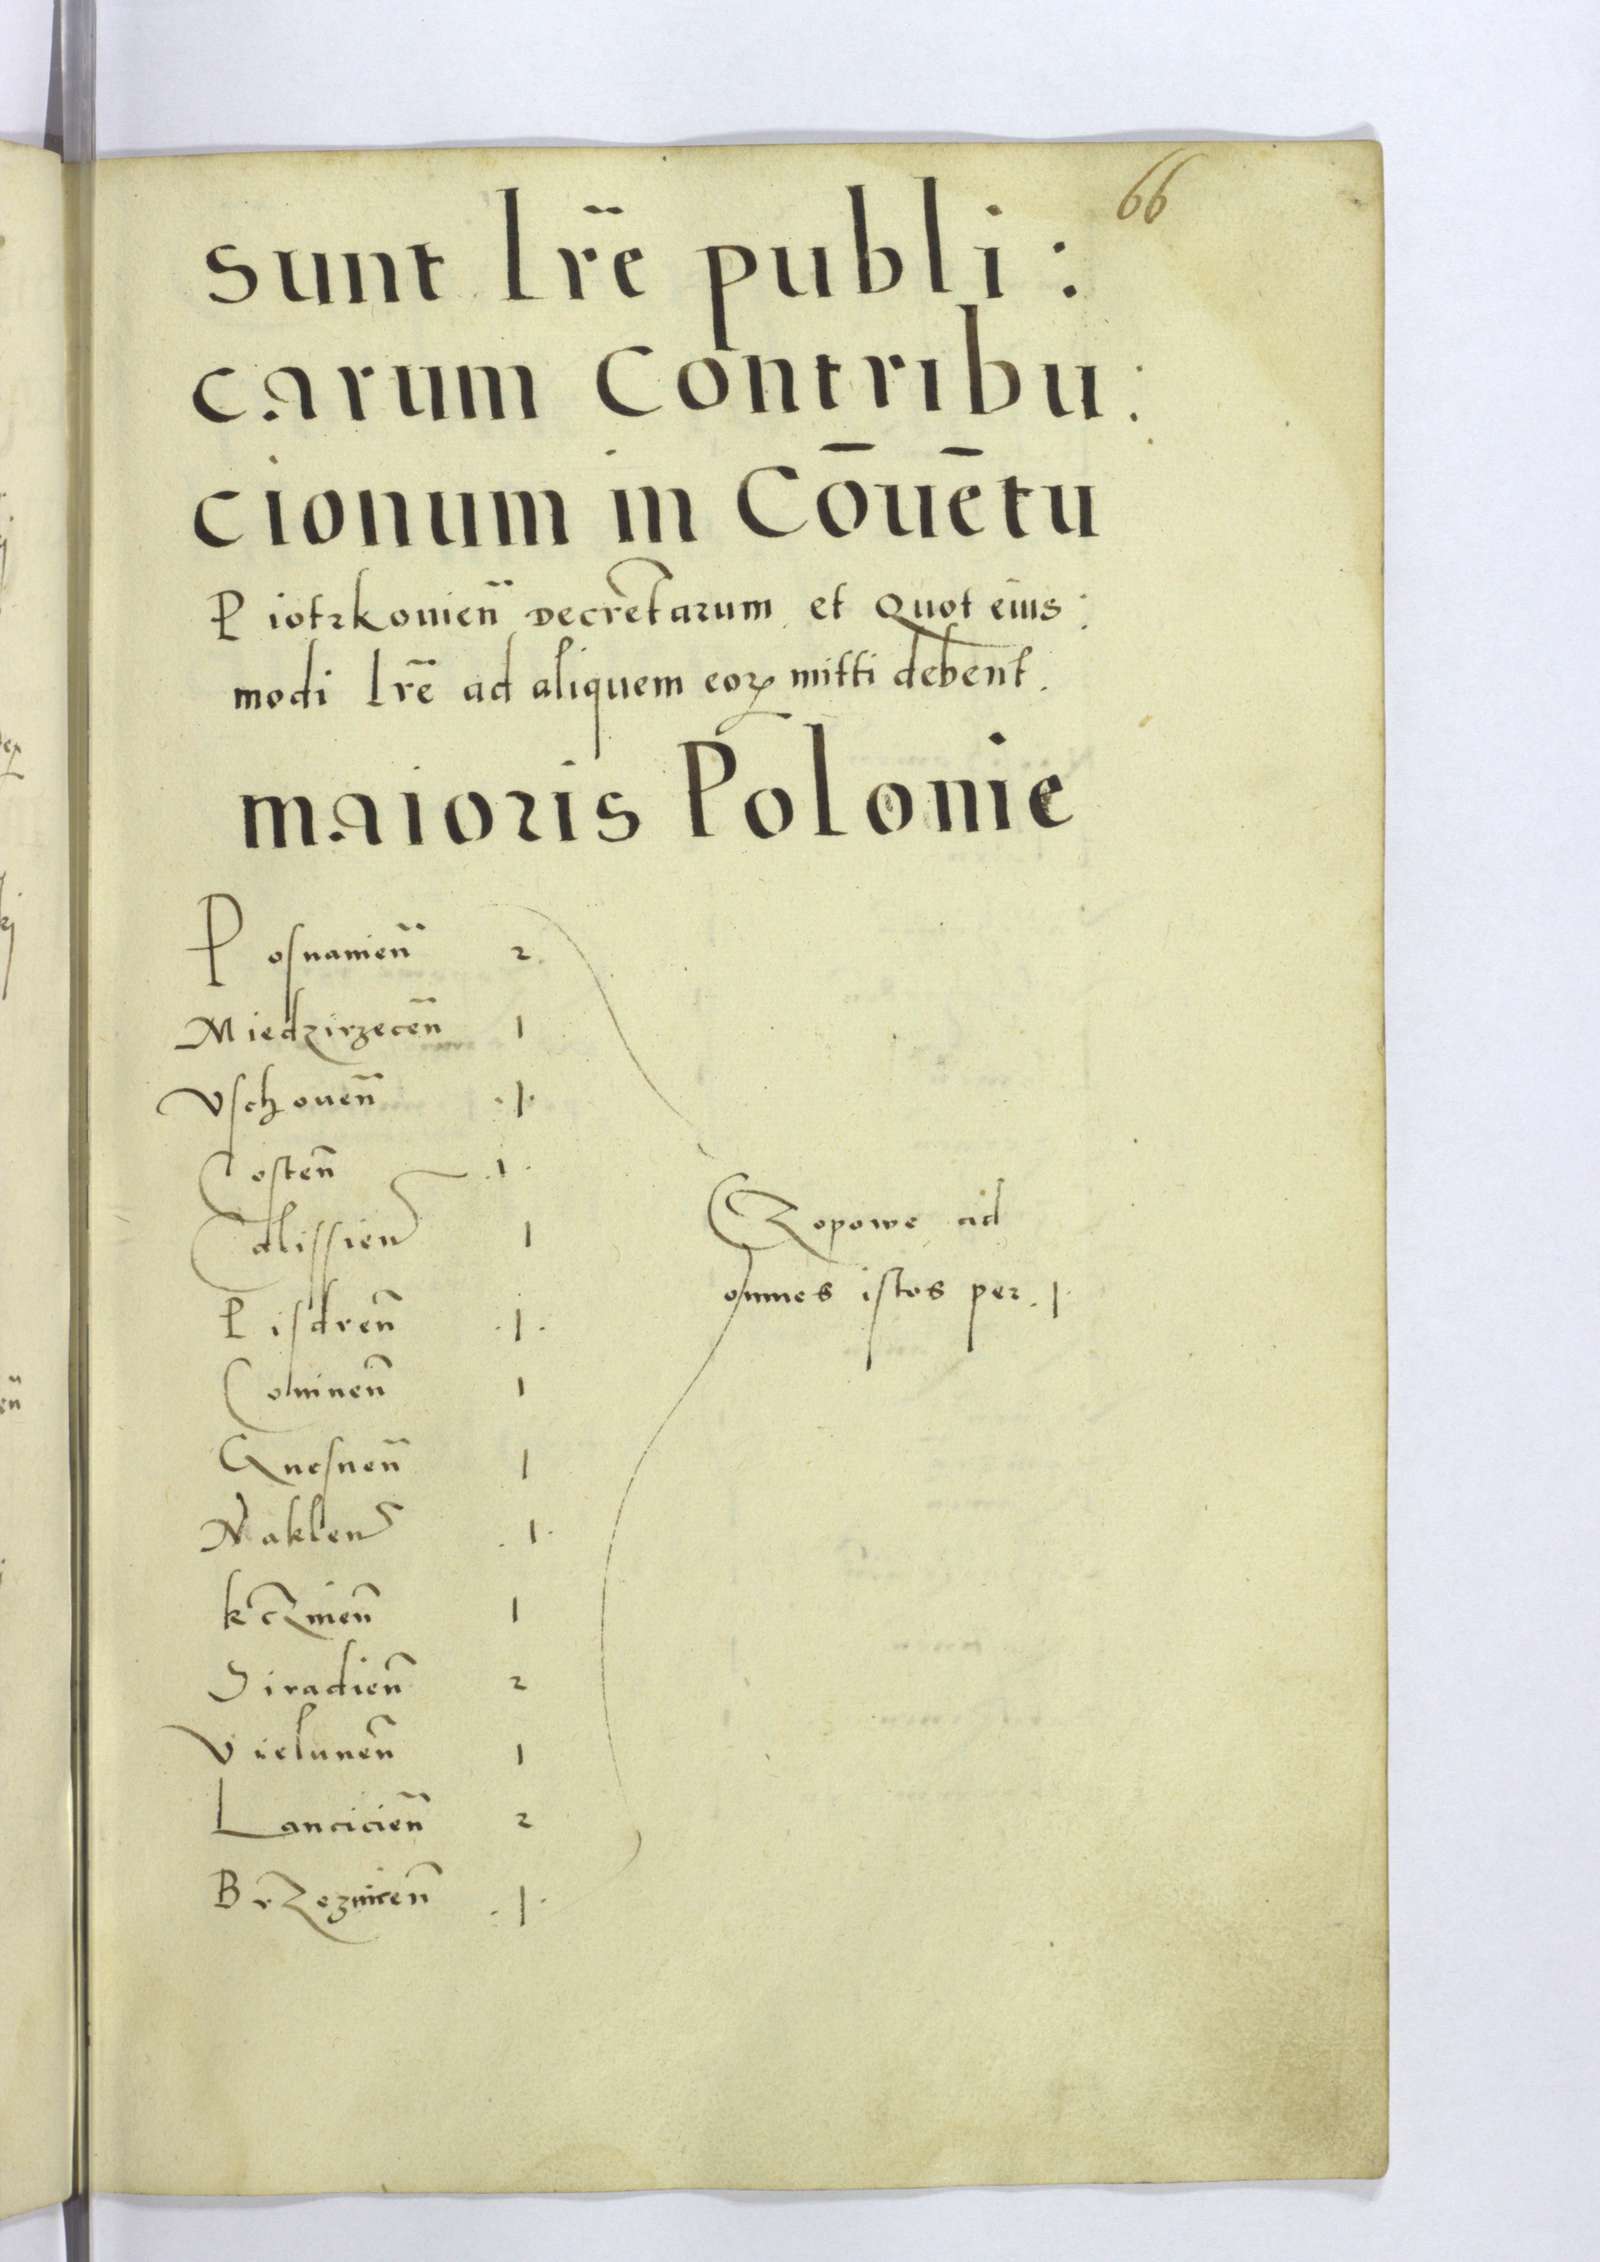 66
sunt lr̃e publi:
carum Contribu:
cionum in Cōuētu
Piotrkouien̄ Decretarum et Quot eius:
modi lr̃e ad aliquem eoꝝ mitti debent.
maioris Polonie
Posnanien̄ 2.
Miedzirzecen̄ 1
Vschouen̄ .1.
Costen̄ .1.
Calissien̄ 1
Pisdren̄ .1.
Coninen̄ 1
Gnesnen̄ 1
Naklen̄ .1.
kczinen̄ 1
Siradien̄ 2
Vielunen̄ 1
Lancicien̄ 2
Brzeznicen̄ .1.
Czopowe ad
omnes istos per .1.